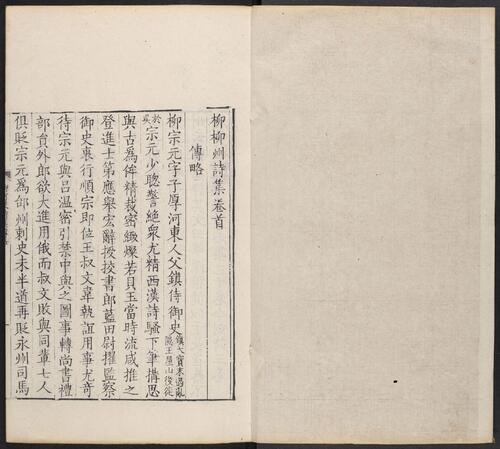 柳柳州詩集卷首
傳略
柳宗元字子厚河東人父鎮侍御史鎮天寶末遇亂隱王屋山後徙
於吳宗元少聰警絶衆尤精西漢詩騷下筆搆思
與古爲侔精裁密緻燦若貝玉當時流咸推之
登進士第應舉宏辭授挍書郎藍田尉擢監察
御史裏行順宗即位王叔文韋執誼用事尤竒
待宗元與呂温密引禁中與之圖事轉尚書禮
部員外郎欲大進用俄而叔文敗與同輩七人
俱貶宗元爲邵州刺史未半道再貶永州司馬